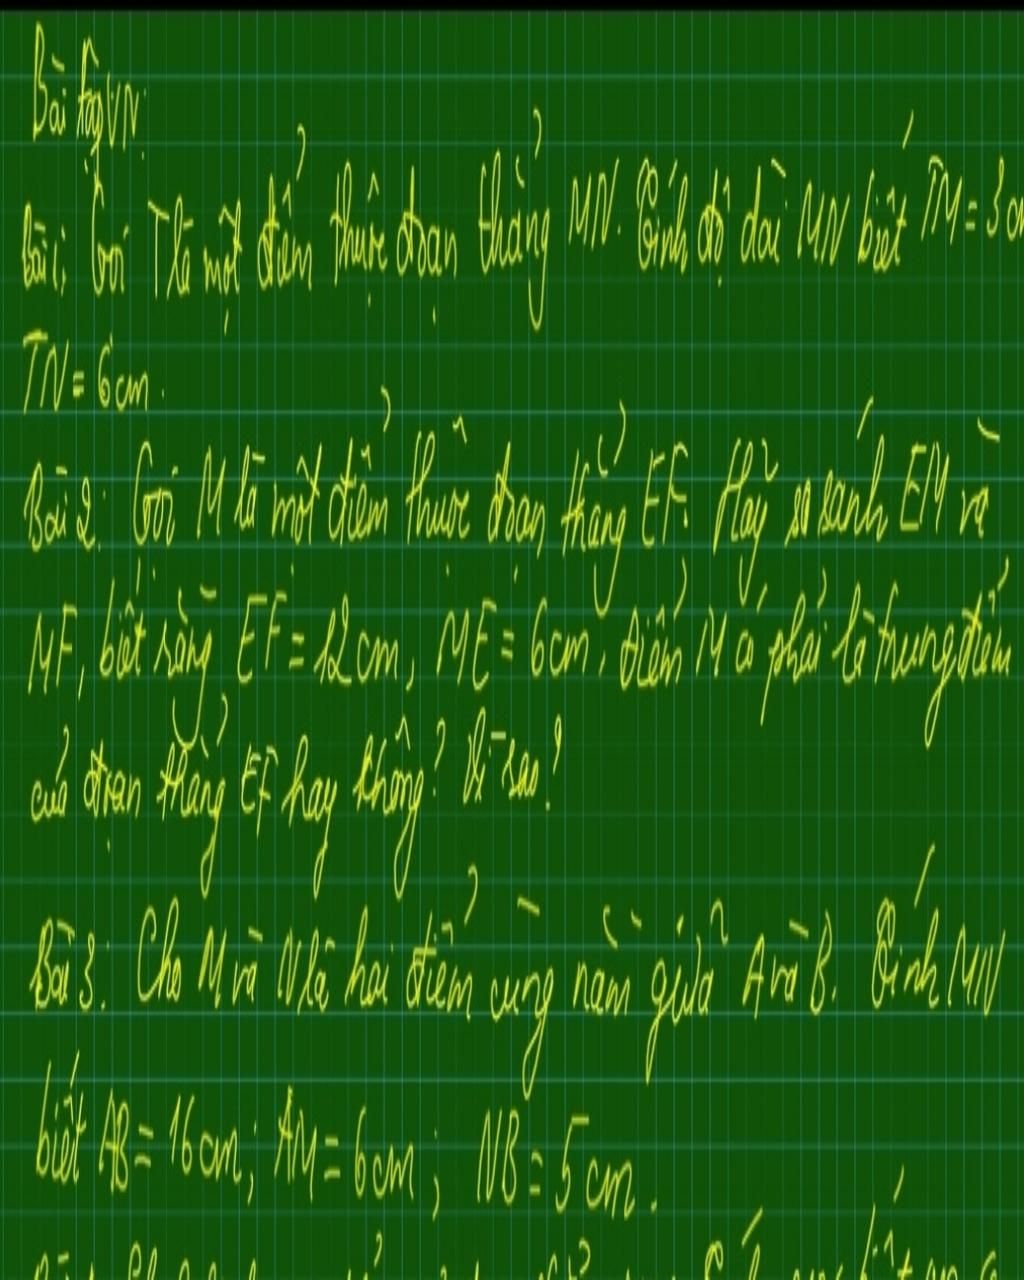 Bài tập VN:
Bài 1: Gọi T là một điểm thuộc đoạn thẳng MN. Tính độ dài MN biết TM = 3cm
TN = 6cm.
Bài 2: Gọi M là một điểm thuộc đoạn thẳng EF. Hãy so sánh EM và
MF, biết rằng EF = 12cm, ME = 6cm, điểm M có phải là trung điểm
của đoạn thẳng EF hay không? Vì sao?
Bài 3: Cho M và N là hai điểm cùng nằm giữa A và B. Tính MN
biết AB = 16cm; AM = 6cm; NB = 5cm.